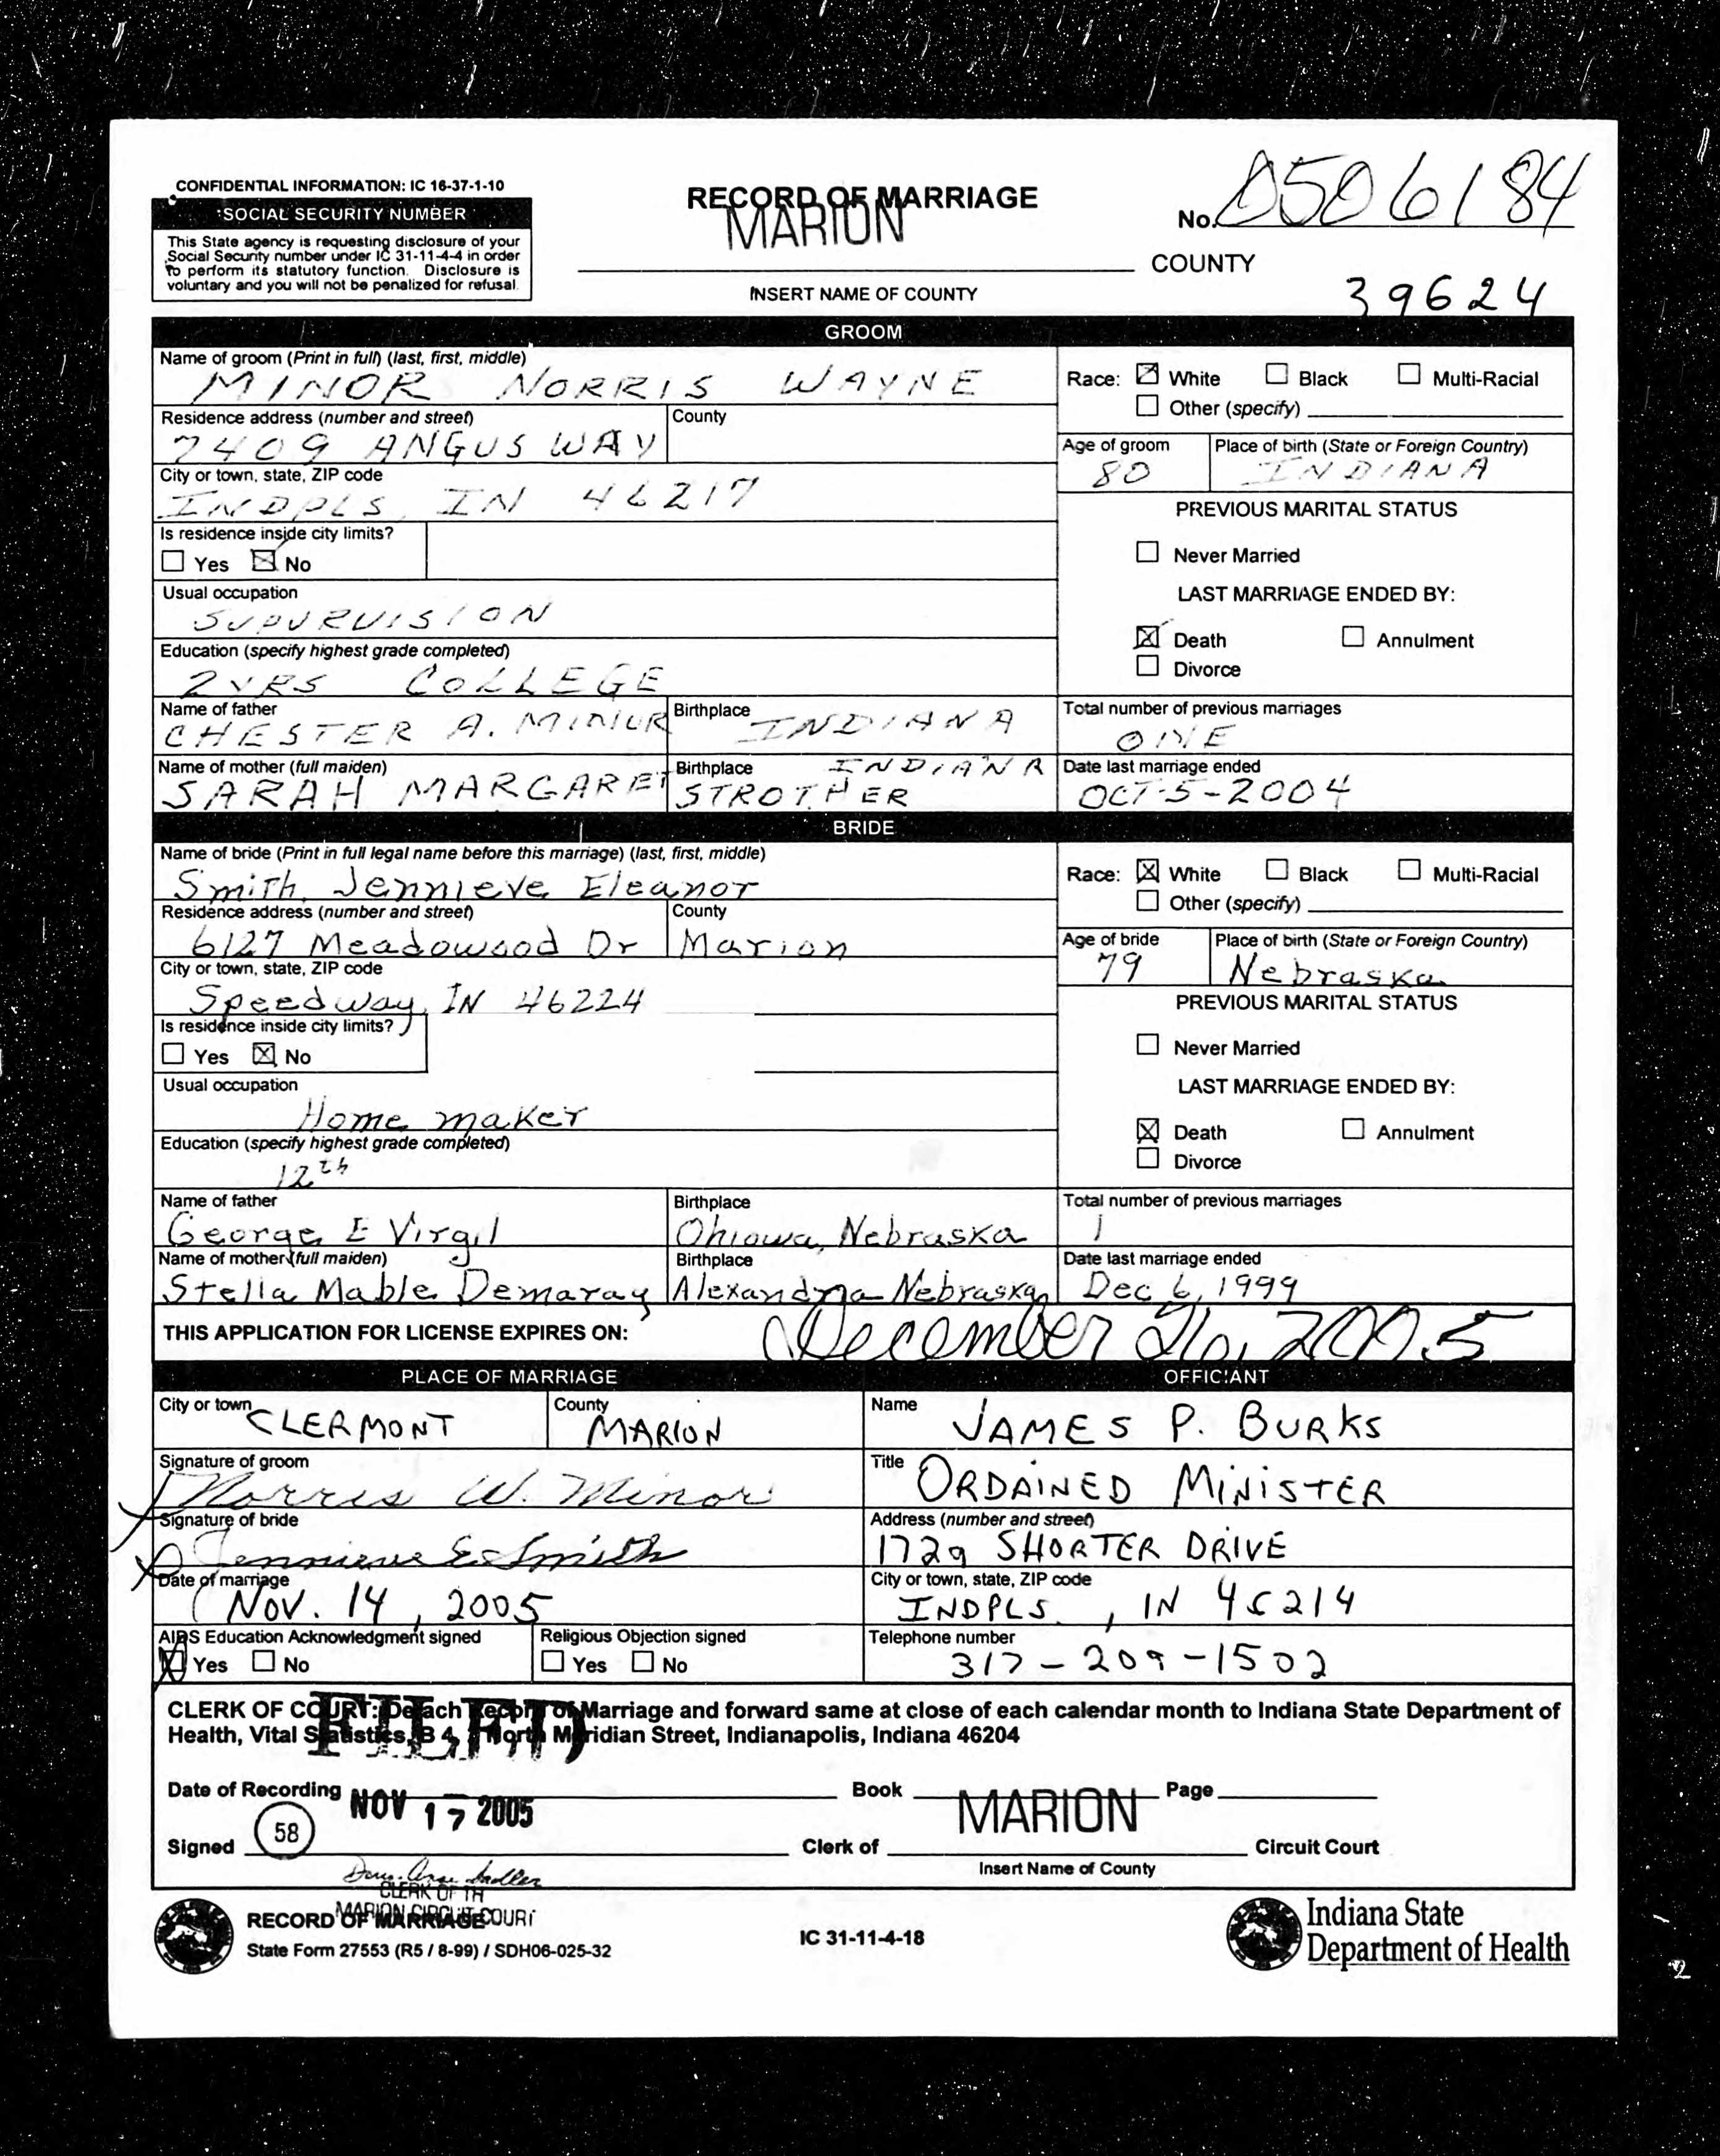 CONFIDENTIAL INFORMATION: IC 16-37-1-10
SOCIAL SECURITY NUMBER
This State agency is requesting disclosure of your
Social Security number under IC 31-11-4-4 in order
to perform its statutory function. Disclosure is
voluntary and you will not be penalized for refusal.
RECORD OF MARRIAGE
MARION
COUNTY
INSERT NAME OF COUNTY
No. 0506184
39624
GROOM
Name of groom (Print in full) (last, first, middle)
MINOR NORRIS WAYNE
Race: White Black Multi-Racial
Other (specify)
Residence address (number and street) County
7409 ANGUS WAY
Age of groom Place of birth (State or Foreign Country)
80 INDIANA
City or town, state, ZIP code
INDPLS, IN 46217
PREVIOUS MARITAL STATUS
Is residence inside city limits?
Yes No
Never Married
Usual occupation
SUPURVISION
LAST MARRIAGE ENDED BY:
Death Annulment
Divorce
Education (specify highest grade completed)
2 YRS COLLEGE
Name of father Birthplace
CHESTER A. MINOR INDIANA
Total number of previous marriages
ONE
Name of mother (full maiden) Birthplace INDIANA
SARAH MARGARET STROTHER
Date last marriage ended
OCT-5-2004
BRIDE
Name of bride (Print in full legal name before this marriage) (last, first, middle)
Smith, Jennieve Eleanor
Race: White Black Multi-Racial
Other (specify)
Residence address (number and street) County
6127 Meadowood Dr Marion
Age of bride Place of birth (State or Foreign Country)
79 Nebraska
City or town, state, ZIP code
Speedway, IN 46224
PREVIOUS MARITAL STATUS
Is residence inside city limits?
Yes No
Never Married
Usual occupation
Home maker
LAST MARRIAGE ENDED BY:
Death Annulment
Divorce
Education (specify highest grade completed)
12th
Name of father Birthplace
George E Virgil Ohiowa, Nebraska
Total number of previous marriages
1
Name of mother (full maiden) Birthplace
Stella Mable Demaray Alexandria Nebraska
Date last marriage ended
Dec 6, 1999
THIS APPLICATION FOR LICENSE EXPIRES ON: December 26, 2005
PLACE OF MARRIAGE
OFFICIANT
City or town CLERMONT County MARION
Name JAMES P. BURKS
Signature of groom
Norris W. Minor
Title ORDAINED MINISTER
Signature of bride
Jennieve E. Smith
Address (number and street)
1729 SHORTER DRIVE
Date of marriage
Nov. 14, 2005
City or town, state, ZIP code
INDPLS., IN 46214
AIDS Education Acknowledgment signed
Yes No
Religious Objection signed
Yes No
Telephone number
317-209-1502
CLERK OF COURT: Detach Record of Marriage and forward same at close of each calendar month to Indiana State Department of
Health, Vital Statistics, B 4, North Meridian Street, Indianapolis, Indiana 46204
FILED
Date of Recording NOV 17 2005 Book Page
Signed 58 Clerk of MARION Circuit Court
Insert Name of County
Doris Anne Sadler
CLERK OF TH
MARION CIRCUIT COURT
RECORD OF MARRIAGE
State Form 27553 (R5 / 8-99) / SDH06-025-32
IC 31-11-4-18
Indiana State
Department of Health
2